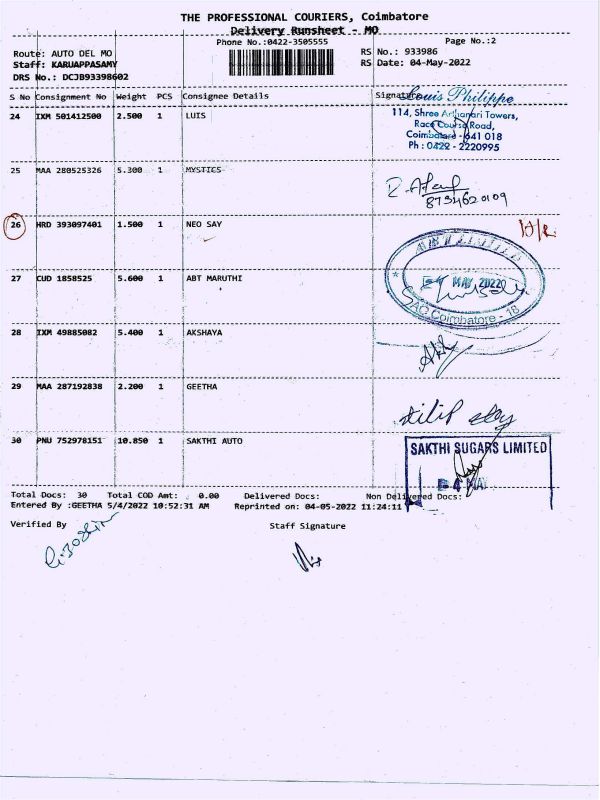 THE PROFESSIONAL COURIERS, Coimbatore
Delivery Runsheet - MO
Phone No.:0422-3505555 Page No.:2
Route: AUTO DEL MO RS No.: 933986
Staff: KARUAPPASAMY RS Date: 04-May-2022
DRS No.: DCJB93398602
S No Consignment No Weight PCS Consignee Details Signature
Louis Philippe
24 IXM 501412500 2.500 1 LUIS
114, Shree Arthanari Towers,
Race Course Road,
Coimbatore - 641 018
Ph : 0422 - 2220995
25 MAA 280525326 5.300 1 MYSTICS
8754620109
26 HRD 393097401 1.500 1 NEO SAY
ABT LIMITED
27 CUD 1858525 5.600 1 ABT MARUTHI
MAY 2022
SAO Coimbatore - 18
28 IXM 49885082 5.400 1 AKSHAYA
29 MAA 287192838 2.200 1 GEETHA
30 PNU 752978151 10.850 1 SAKTHI AUTO
SAKTHI SUGARS LIMITED
4 MAY
Total Docs: 30 Total COD Amt: 0.00 Delivered Docs: Non Delivered Docs:
Entered By :GEETHA 5/4/2022 10:52:31 AM Reprinted on: 04-05-2022 11:24:11
Verified By Staff Signature